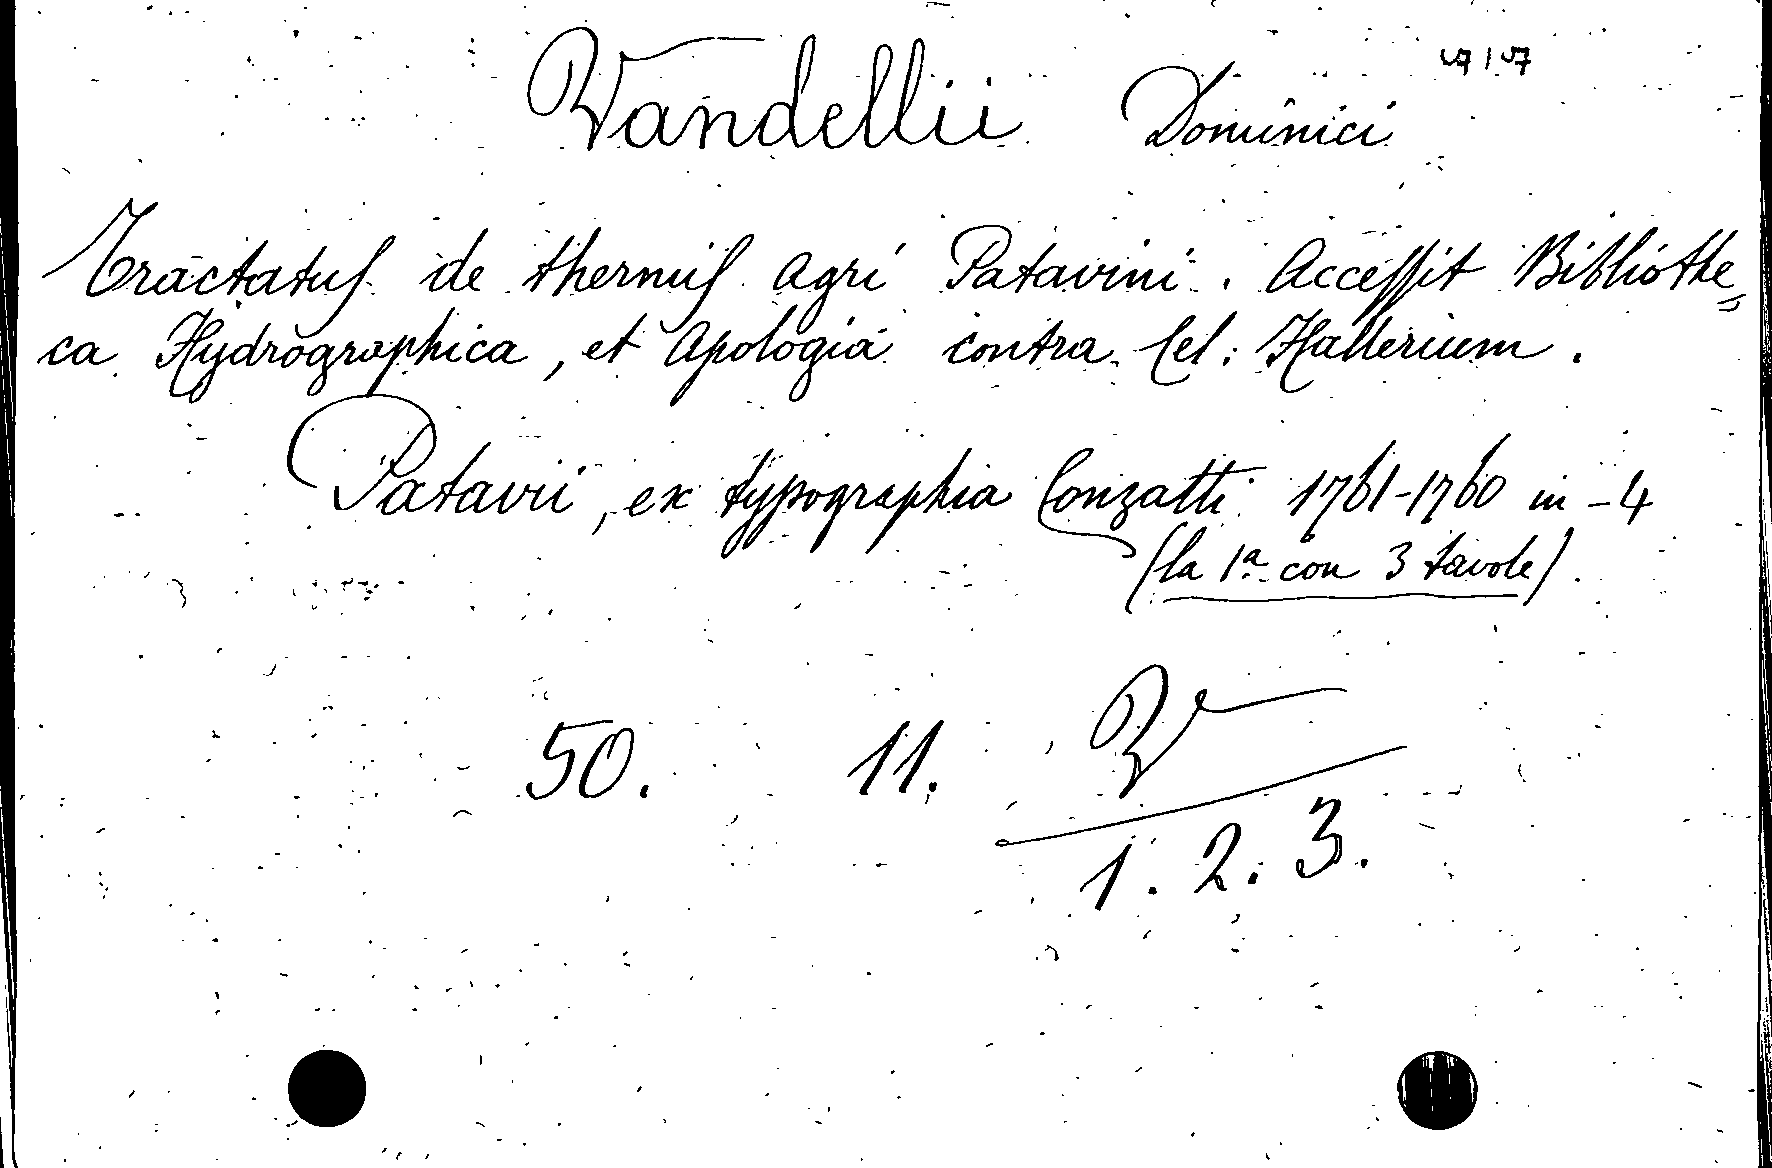 Vandellii Dominici
Tractatus de thermis agri Patavini. Accessit Bibliothe=
ca Hydrographica, et Apologia contra Cel: Hallerium.
Patavii, ex typographia Conzatti 1761-1760 in-4
(la 1ª con 3 tavole).
50. 11. V
1. 2. 3.